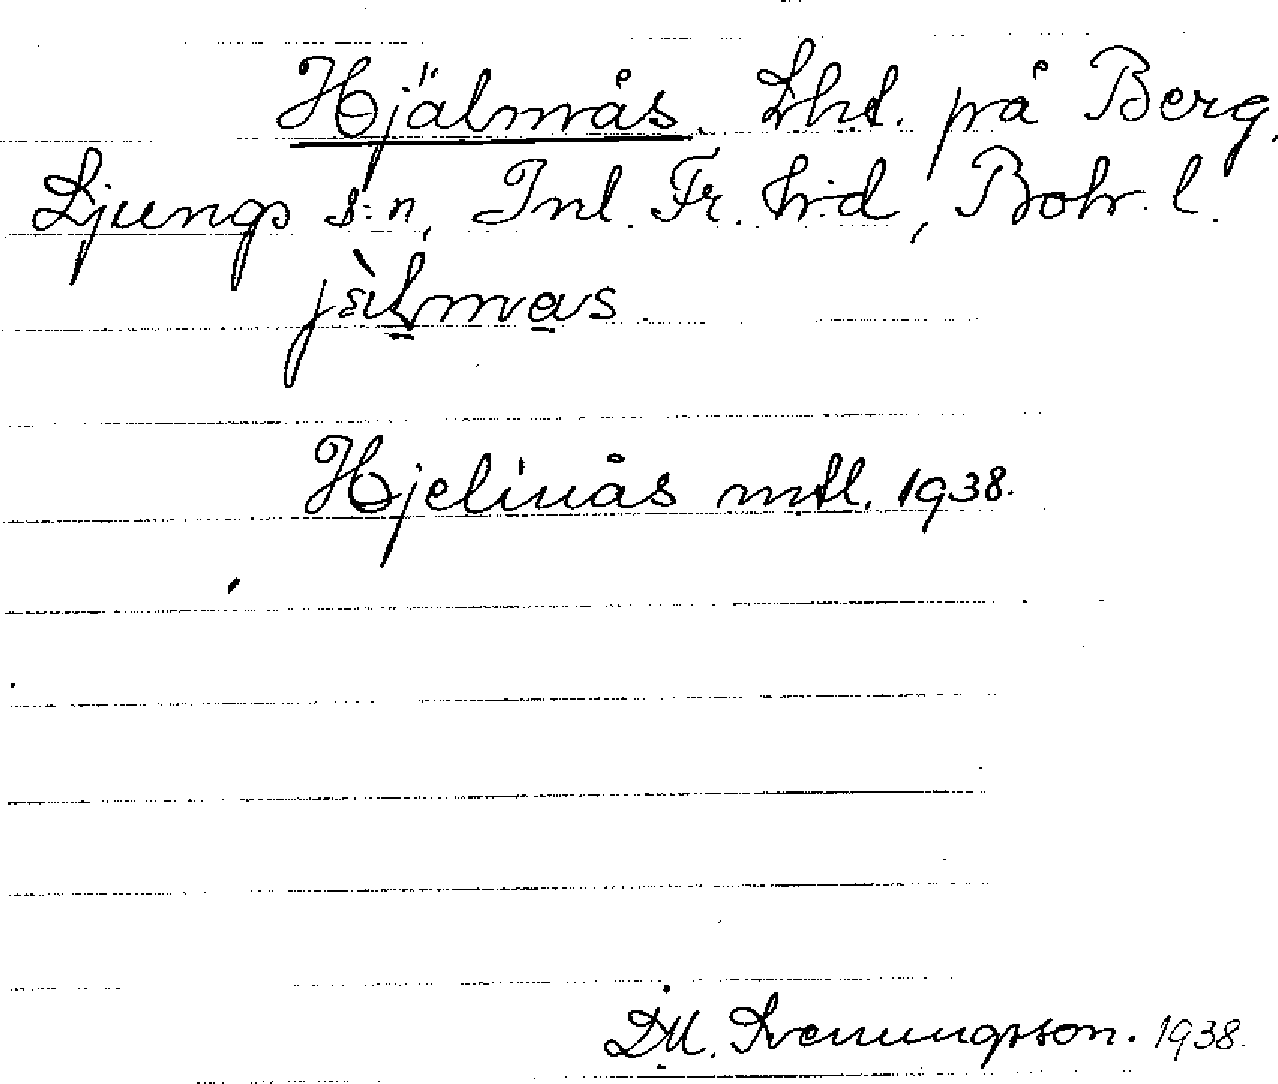 Hjälmås. Lht. på Berg,
Ljungs s:n, Inl. Fr. h:d, Boh. l.
Hjelmås mtl. 1938.
D.M. Svenungsson. 1938.